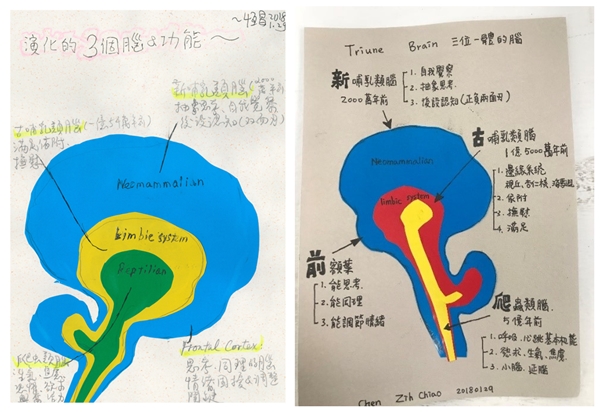 2018
1.29
演化的3個腦&功能～
新哺乳類腦
抽象思考、自我覺察
後設認知(双面刃)
古哺乳類腦
滿足依附
撫慰
Neomammalian
Limbic system
Reptilian
爬虫類腦
Frontal Cortex:
思考、同理的腦
情緒因挫&調整
關鍵
Triune Brain 三位一體的腦
新哺乳類腦
2000萬年前
1. 自我覺察
2. 抽象思考.
3. 後設認知(正負兩面刃)
古哺乳類腦
1億5000萬年前
1. 邊緣系統
視丘、杏仁核、海馬迴
2. 依附
3. 撫慰
4. 滿足
Neomammalian
limbic system
前額葉
1. 能思考.
2. 能同理
3. 能調節情緒
爬蟲類腦
5億年前
1. 呼吸、心跳基本功能
2. 戀求、生氣、焦慮
3. 小腦、延腦
Chen Zih Chiao 20180129